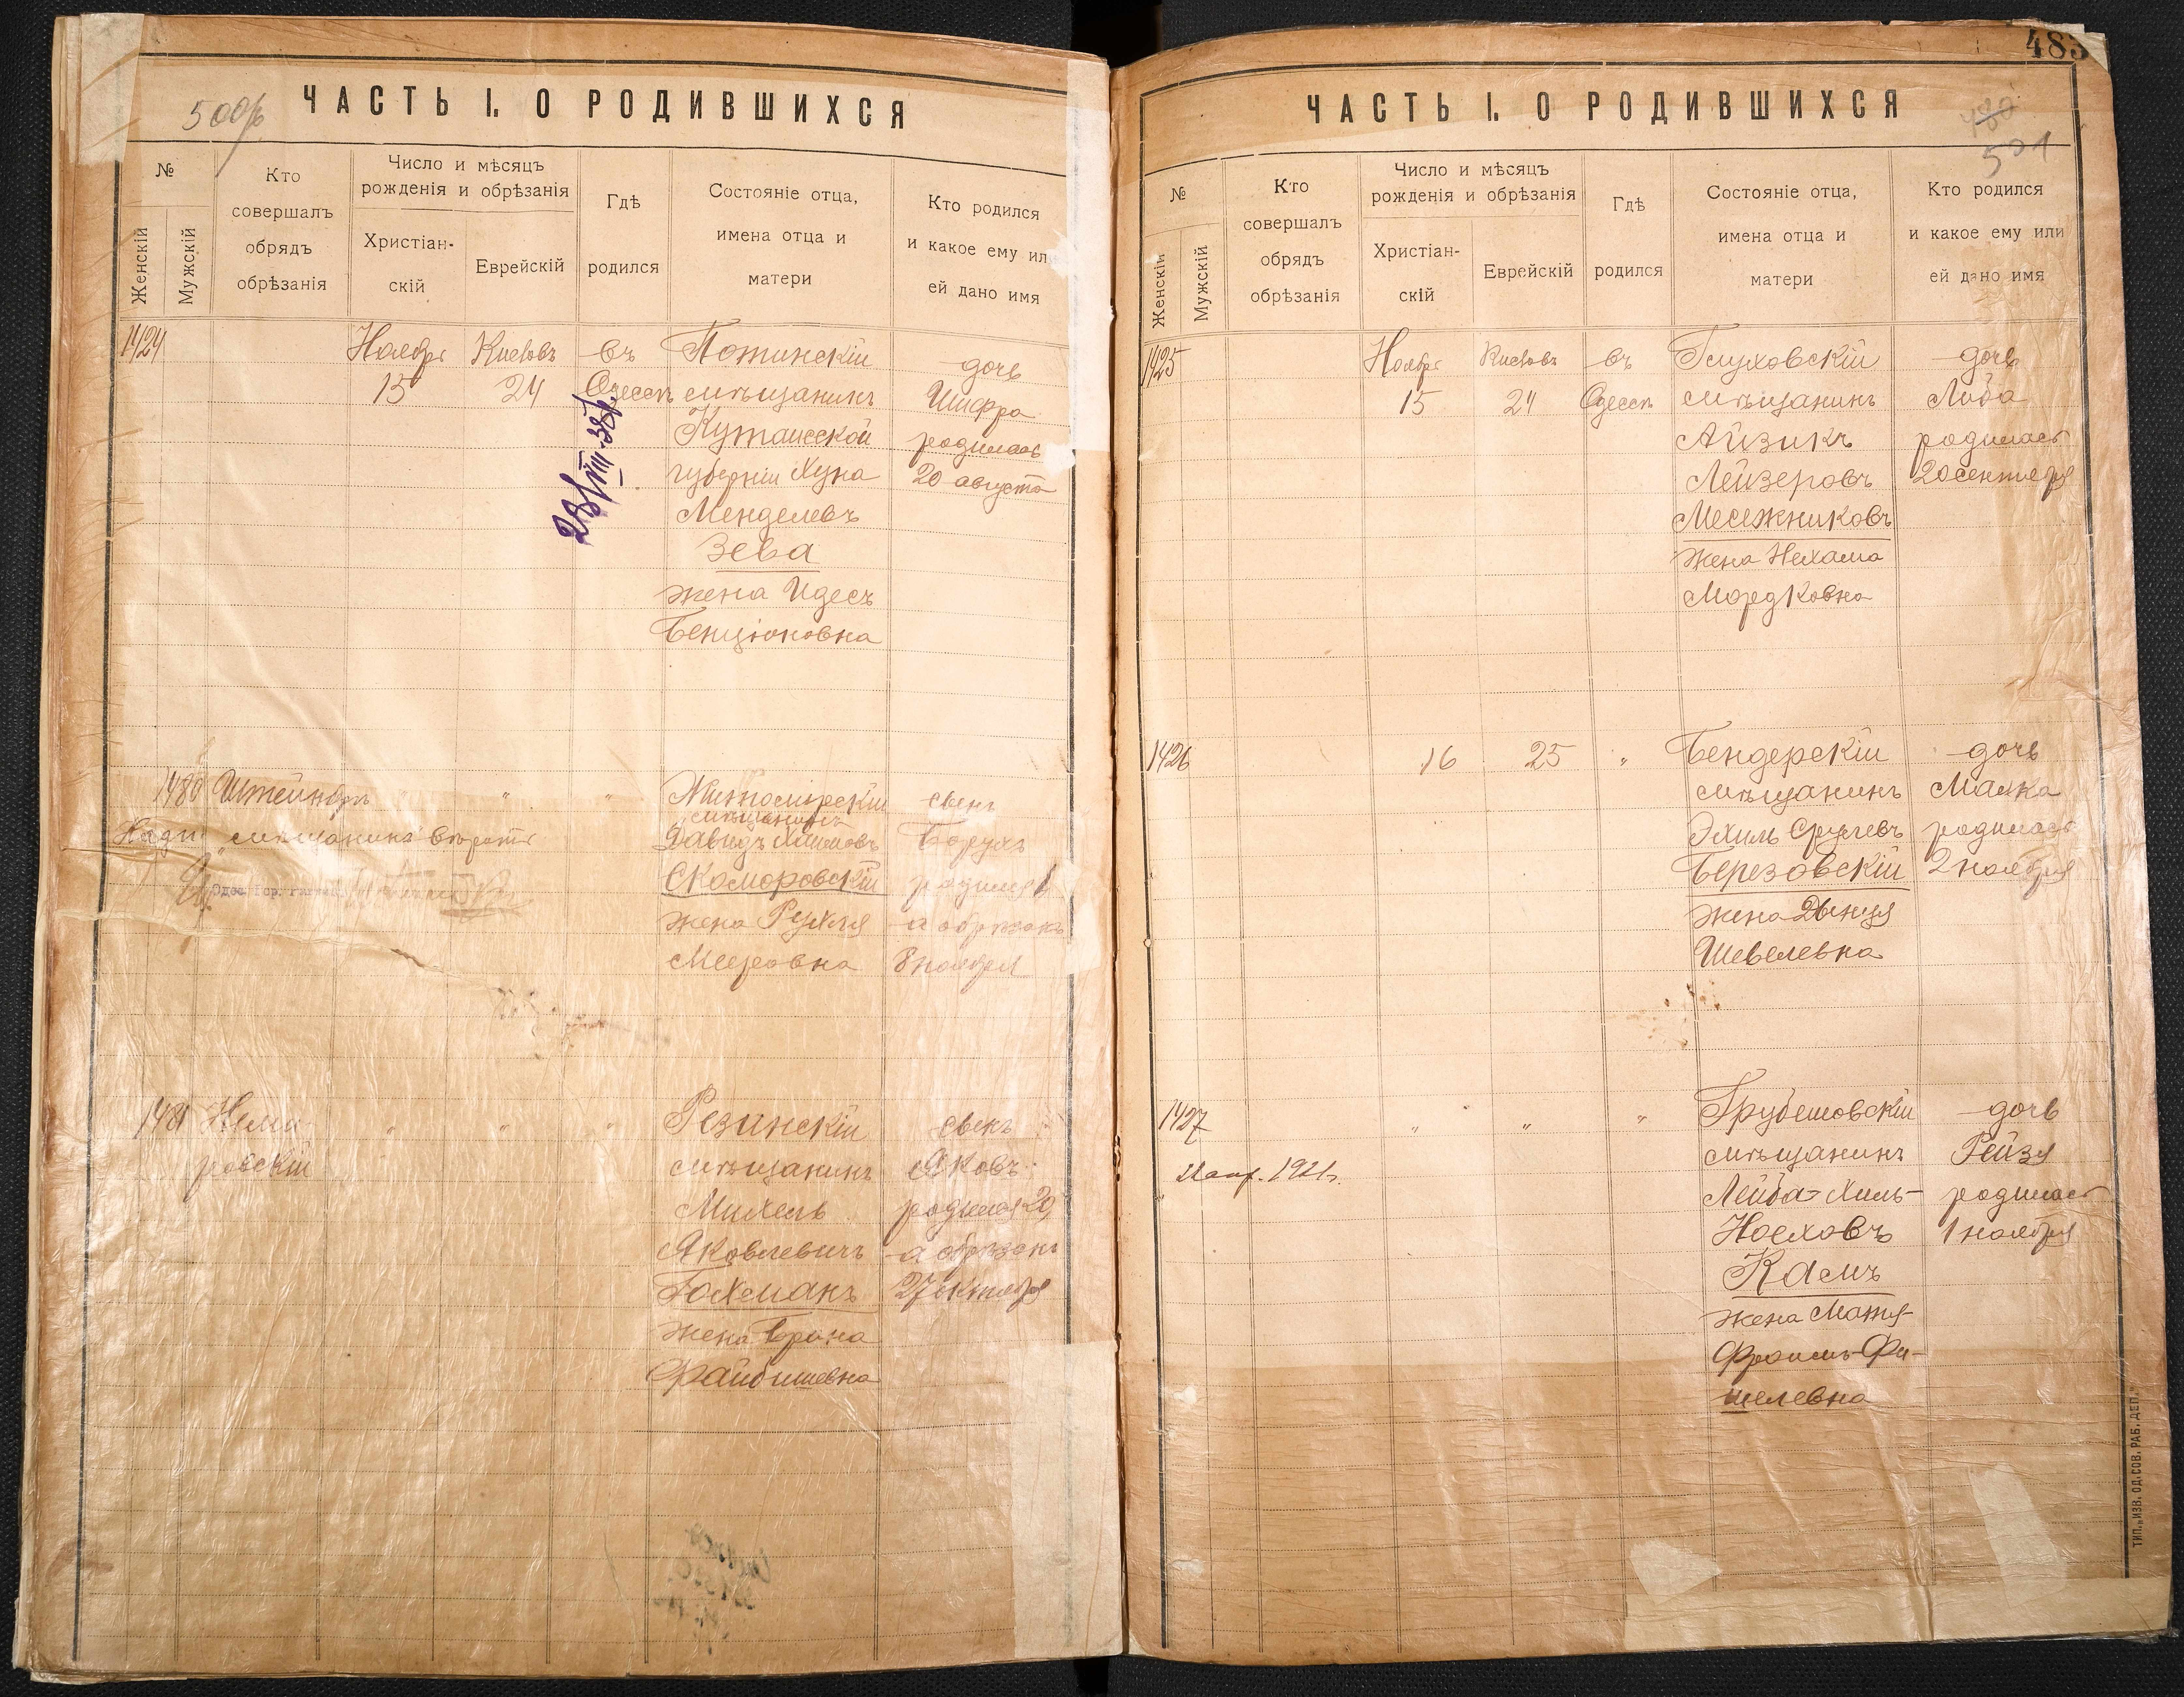 500
ЧАСТЬ I. О РОДИВШИХСЯ
№
Женскій
Мужскій
Кто совершалъ обрядъ обрѣзанія
Число и мѣсяцъ рожденія и обрѣзанія
Христіан-скій
Еврейскій
Гдѣ родился
Состояніе отца, имена отца и матери
Кто родился и какое ему ил ей дано имя
1424
Ноябрь 15
Кислевъ 24
въ Одессѣ
23/VIII-38г.
Потинскій
мѣщанинъ
Кутаисской
губерніи Хуна
Менделевъ
Зева
жена Идесъ
Бенціоновна
дочь
Шифра
родилась
20 августа
1480
"
"
"
мѣщанинъ
Давидъ Хаимовъ
Скоморовскій
жена Рухля
Мееровна
сынъ
Борухъ
родился 1
а обрѣзанъ
8 ноября
1481
Неми-
ровскій
"
"
"
Резинскій
мѣщанинъ
Михель
Яковлевичъ
Гохманъ
жена Брана
Файбишевна
сынъ
Яковъ
родился 20,
а обрѣзанъ
27 октября
483
ЧАСТЬ I. О РОДИВШИХСЯ
480
501
№
Женскій
Мужскій
Кто совершалъ обрядъ обрѣзанія
Число и мѣсяцъ рожденія и обрѣзанія
Христіан-скій
Еврейскій
Гдѣ родился
Состояніе отца, имена отца и матери
Кто родился и какое ему или ей дано имя
1425
Ноябрь 15
Кислевъ 24
въ Одессѣ
Глуховскій
мѣщанинъ
Айзикъ
Лейзеровъ
Месежниковъ
жена Нехама
Мордковна
дочь
Люба
родилась
20 сентября
1426
16
25
"
Бендерскій
мѣщанинъ
Эхиль Срулевъ
Березовскій
жена Двенця
Шевелевна
дочь
Малка
родилась
2 ноября
1427
21 апр. 1921г.
"
"
"
Грубешовскій
мѣщанинъ
Лейба-Хиль-
Ноеховъ
Камъ
жена Матя-
Фроимъ-Фи-
шелевна
дочь
Рейзя
родилась
1 ноября
ТИП. „ИЗВ. ОД. СОВ. РАБ. ДЕП."